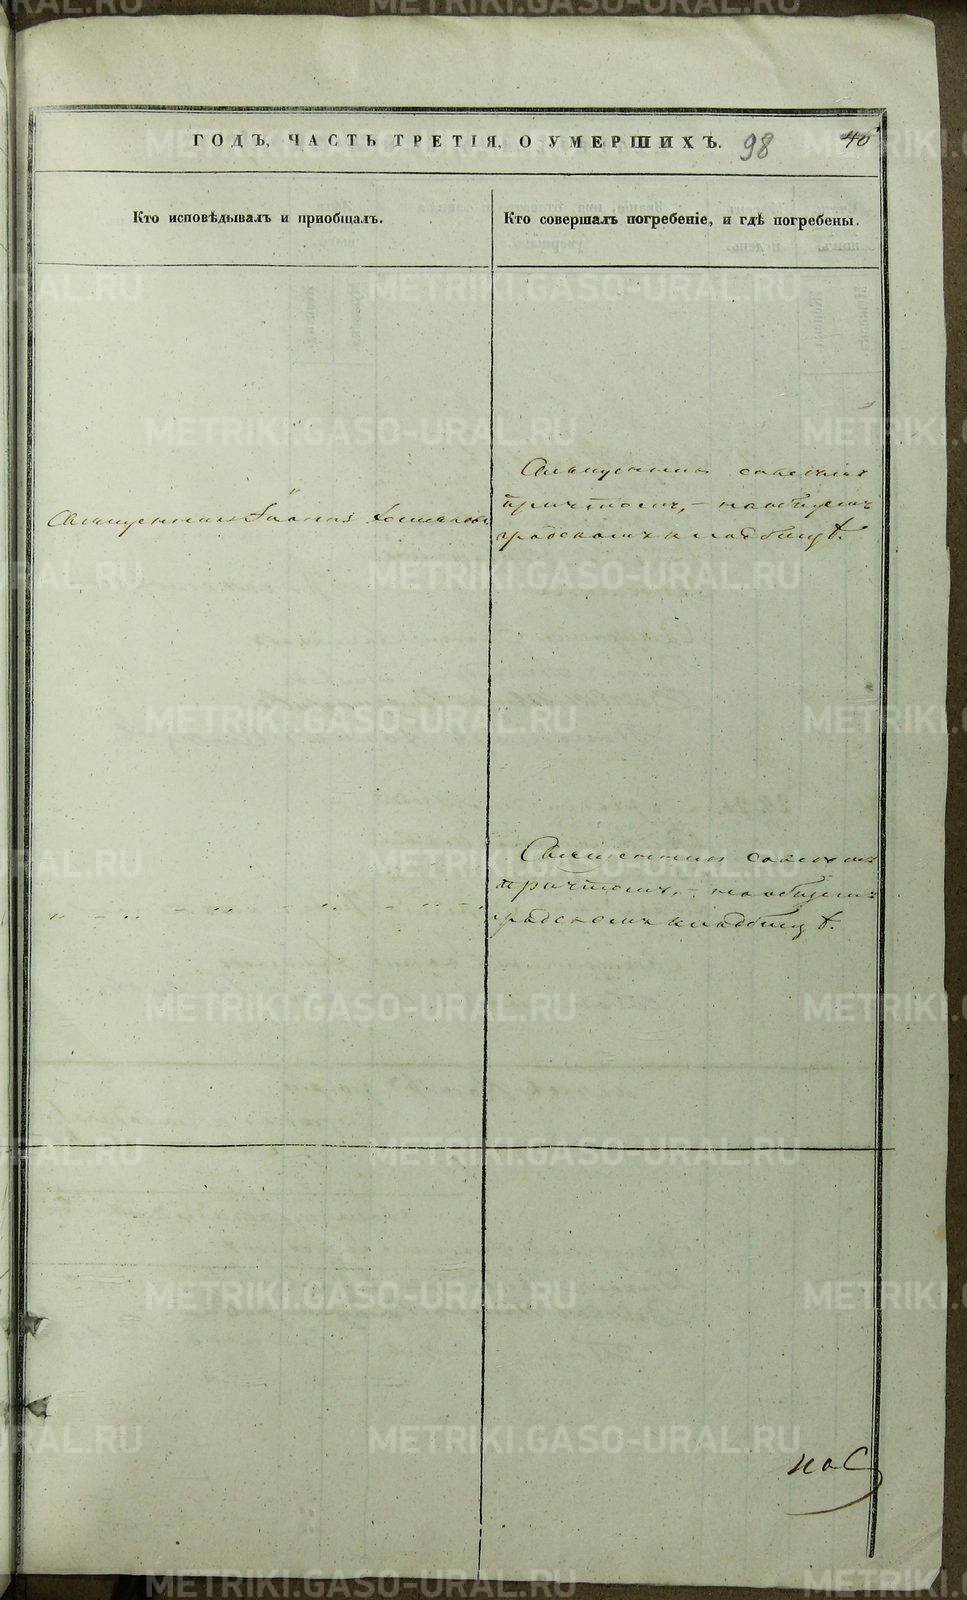 ГОДЪ, ЧАСТЬ ТРЕТІЯ, О УМЕРШИХЪ. 98 46
Кто исповѣдывалъ и пріобщалъ.
Кто совершалъ погребеніе, и гдѣ погребены.
Священникъ Іоаннъ
Священникъ съ
причтомъ, – на общемъ
градскомъ кладбищѣ.
Священникъ съ
причтомъ, – на общемъ
градскомъ кладбищѣ.
METRIKI.GASO-URAL.RU